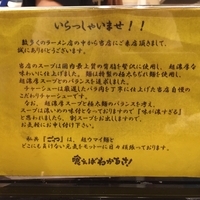 いらっしゃいませ！！
数多くのラーメン店の中から当店にご来店頂きまして、
誠にありがとうございます。
当店のスープは国内最上質の背脂を贅沢に使用し、超濃厚な
味わいに仕上げました。麺は特製の極太ちぢれ麺を使用、
超濃厚スープとのバランスも抜群です。
チャーシューは厳選したバラ肉を丁寧に仕上げた当店自慢の
こだわりチャーシューです。
なお、超濃厚スープと極太麺のバランスを考え、
スープは濃いめの味付となっておりますので「味が濃すぎる」
と思われましたら、割スープをお出ししますので、
お気軽にお申し付け下さい。
「ごっつ」は、超ウマイ麺と
どこにも負けない元気をモットーに日々頑張っております。
喰えばわかるさ！